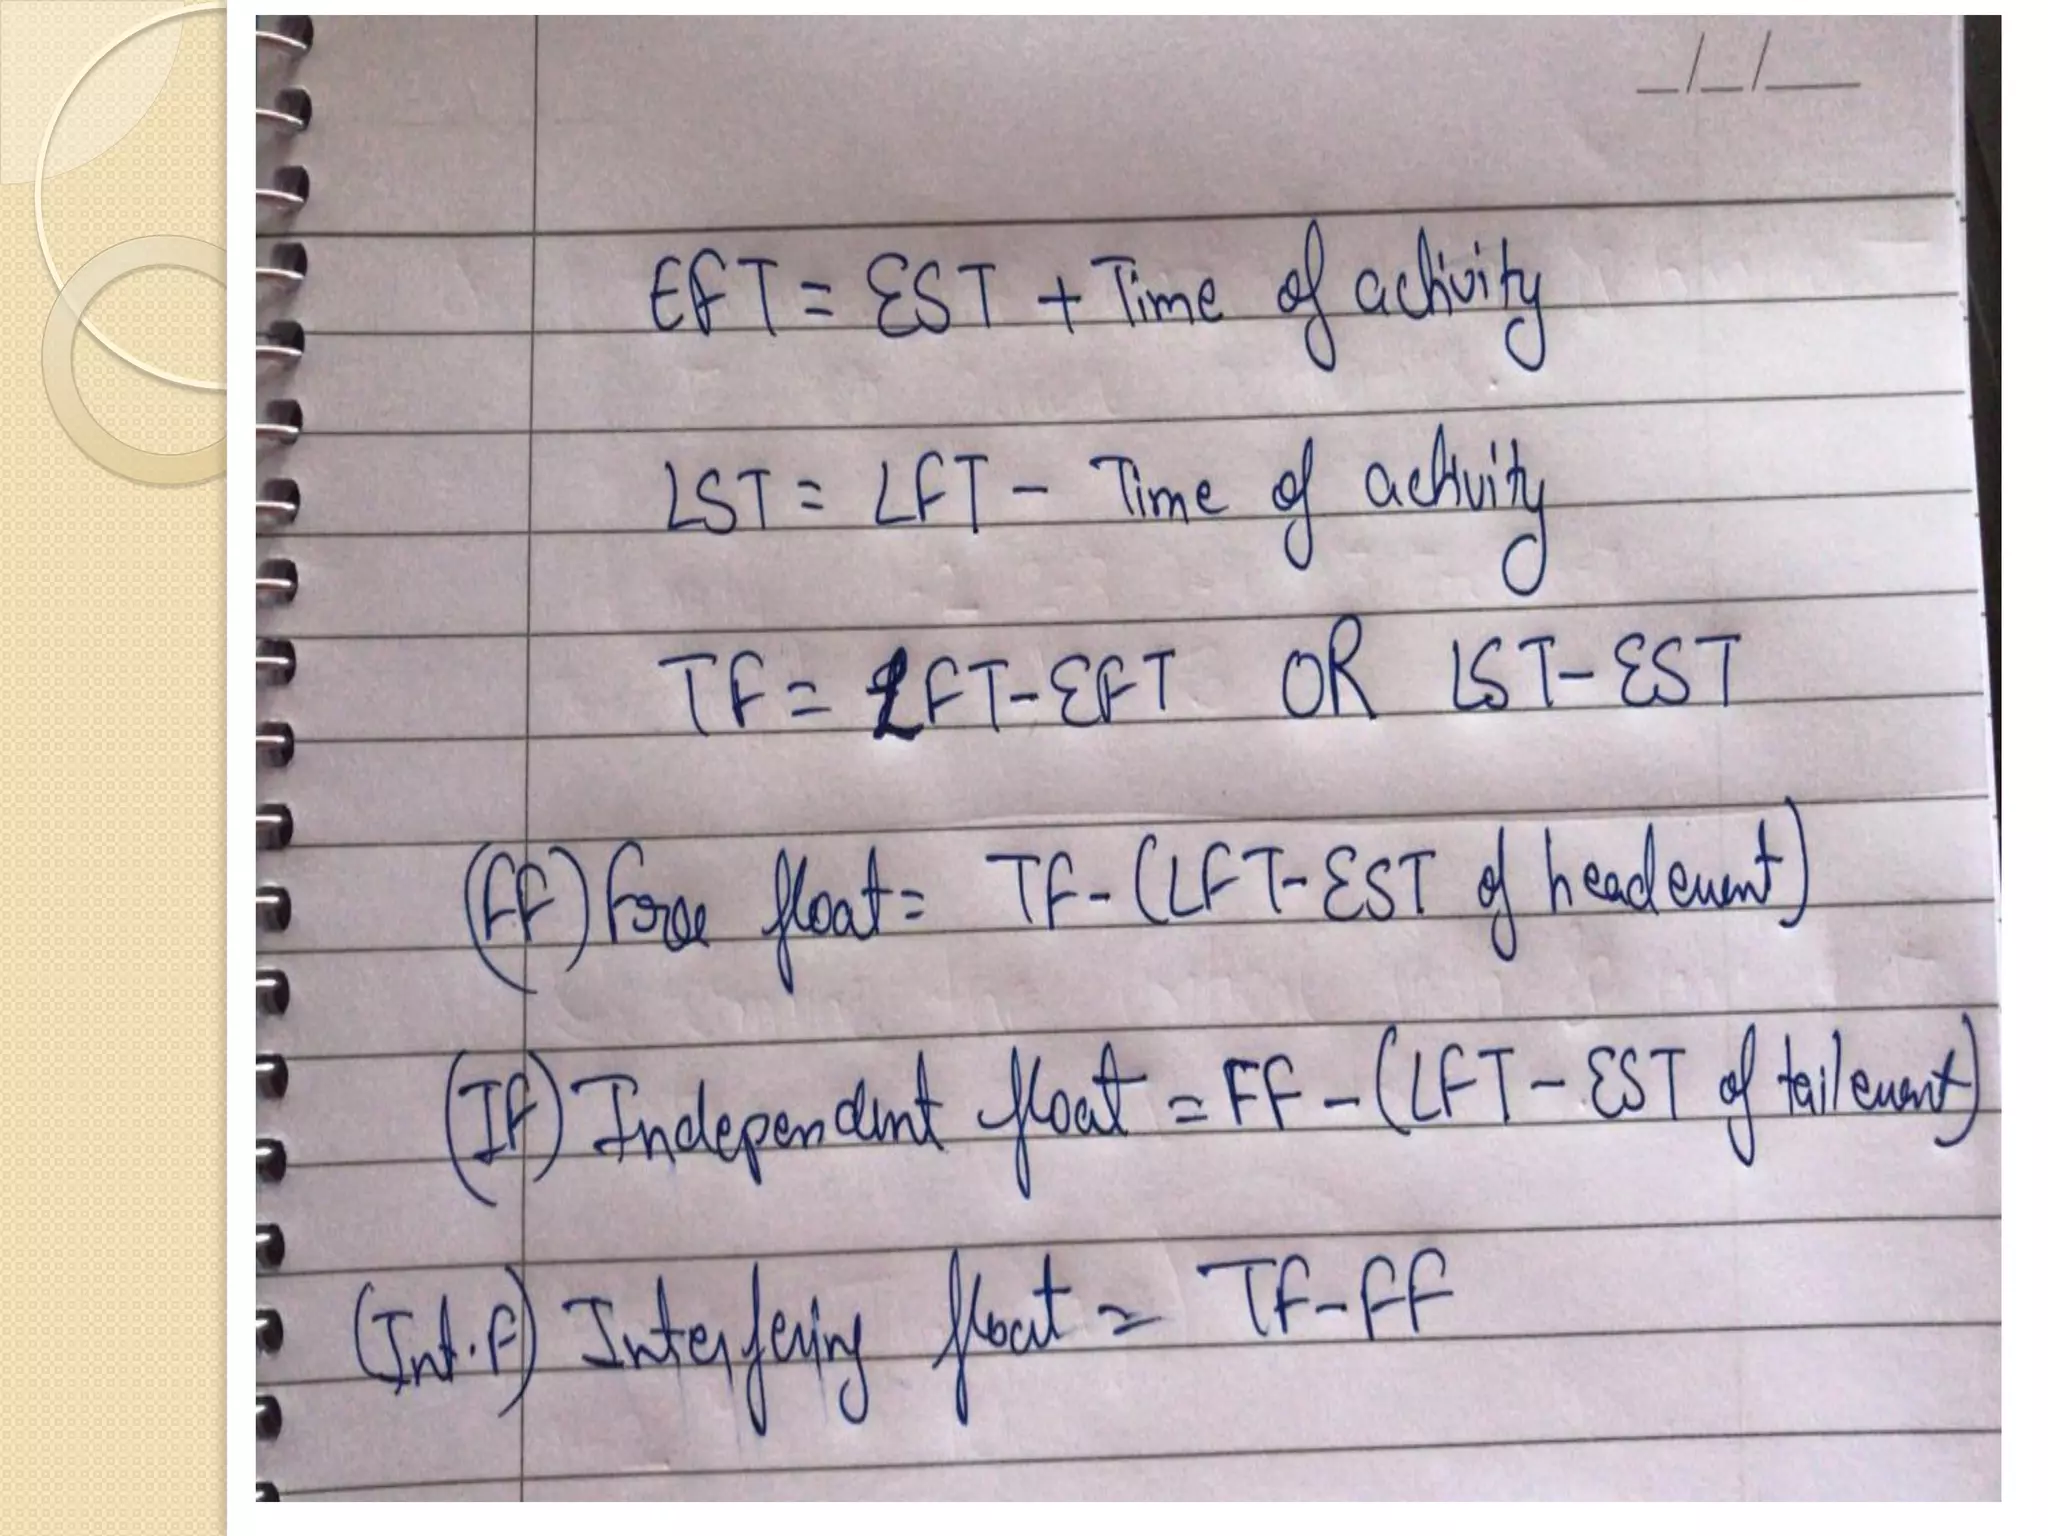 _/_/__
EFT = EST + Time of activity
LST = LFT - Time of activity
TF = LFT-EFT OR LST-EST
(FF) Force float = TF-(LFT-EST of head event)
(IF) Independent float = FF-(LFT-EST of tail event)
(Int.F) Interfering float = TF-FF